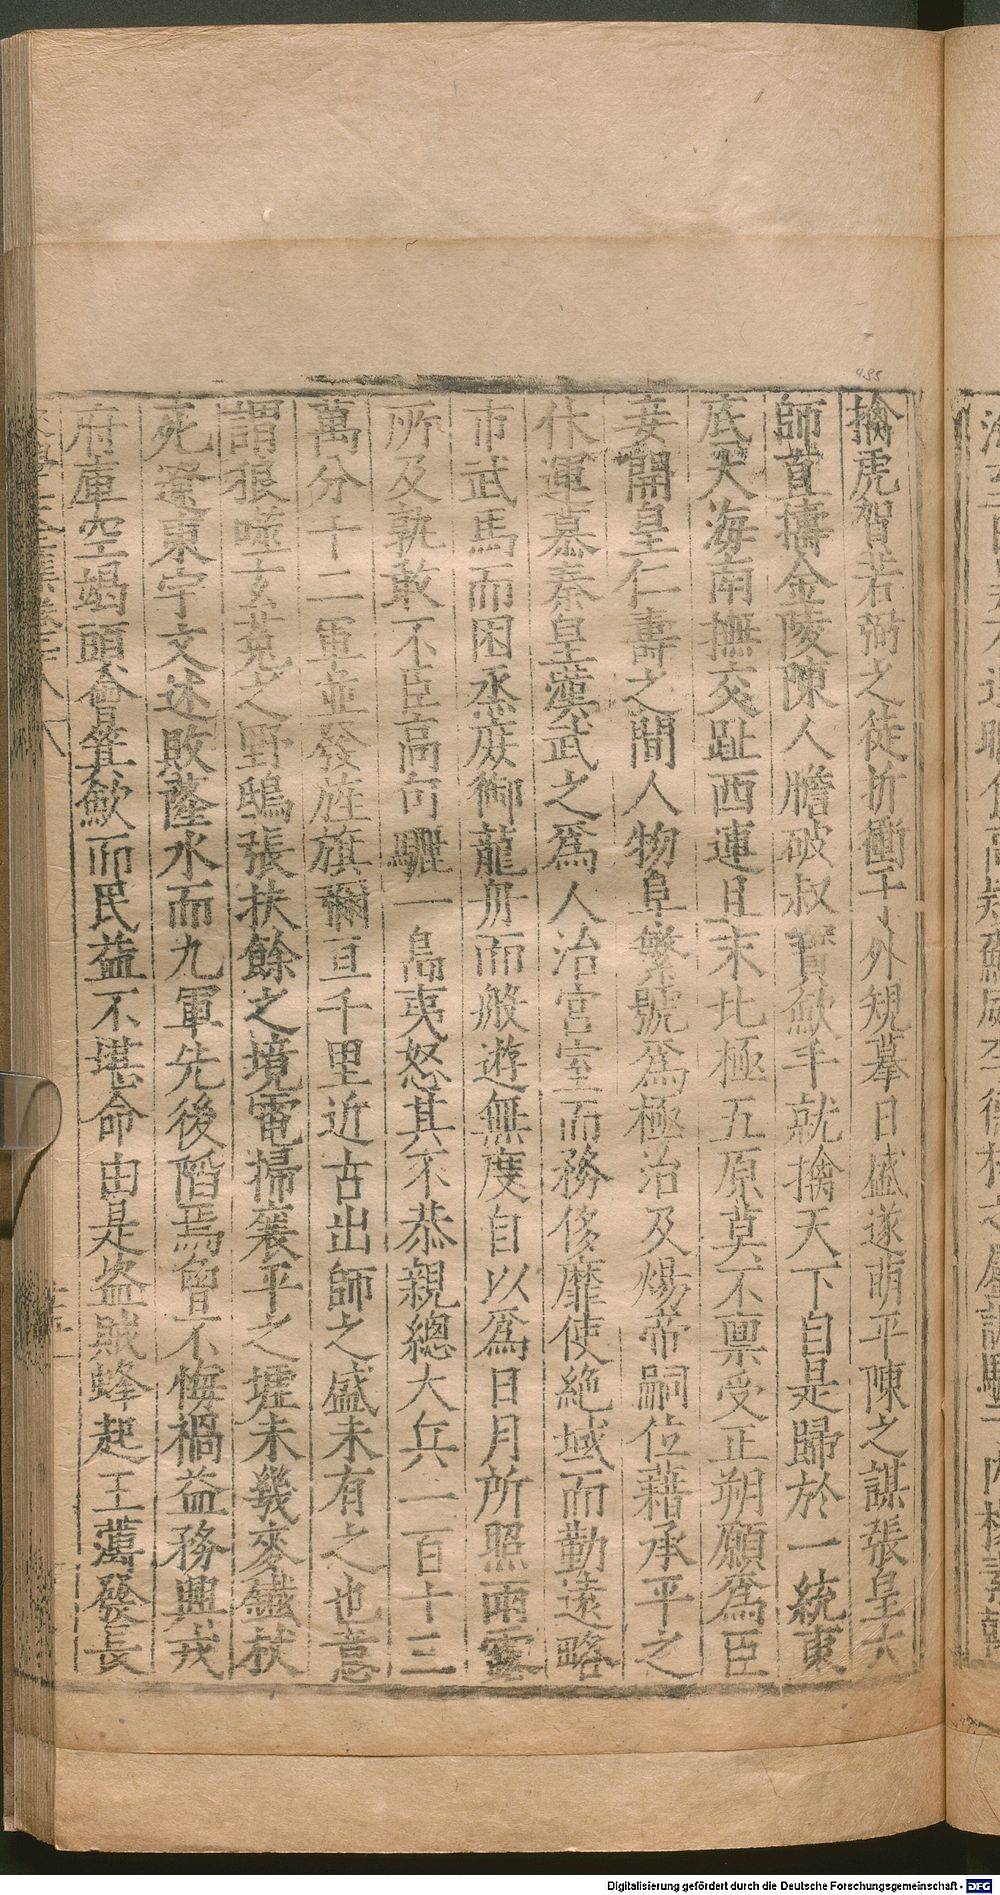 擒虎賀若弼之徒折衝于外規摹日盛遂萌平陳之謀張皇六
師直擣金陵陳人膽破叔寶斂手就擒天下自是歸於一統東
底大海南撫交趾西連且末北極五原莫不禀受正朔願爲臣
妾開皇仁壽之間人物阜繁號爲極治及煬帝嗣位藉承平之
休運慕秦皇漢武之爲人治宮室而務侈靡使絶域而勤遠略
市武馬而困丞庭御龍舟而般遊無度自以爲日月所照雨露
所及孰敢不臣高句驪一島夷怒其不恭親總大兵一百十三
萬分十二軍並發旌旗彌亘千里近古出師之盛未有之也意
謂狼噬玄菟之野鴟張扶餘之境電掃襄平之墟未幾麥鐵杖
死遼東宇文述敗薩水而九軍先後䧟焉曾不悔禍益務興戎
府庫空竭頭會箕斂而民益不堪命由是盜賊蜂起王薄發長
495
Digitalisierung gefördert durch die Deutsche Forschungsgemeinschaft - DFG